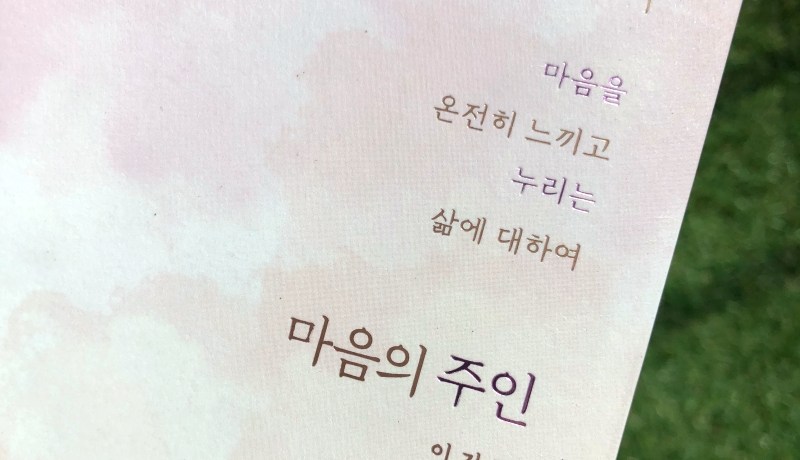 마음을
온전히 느끼고
누리는
삶에 대하여
마음의 주인